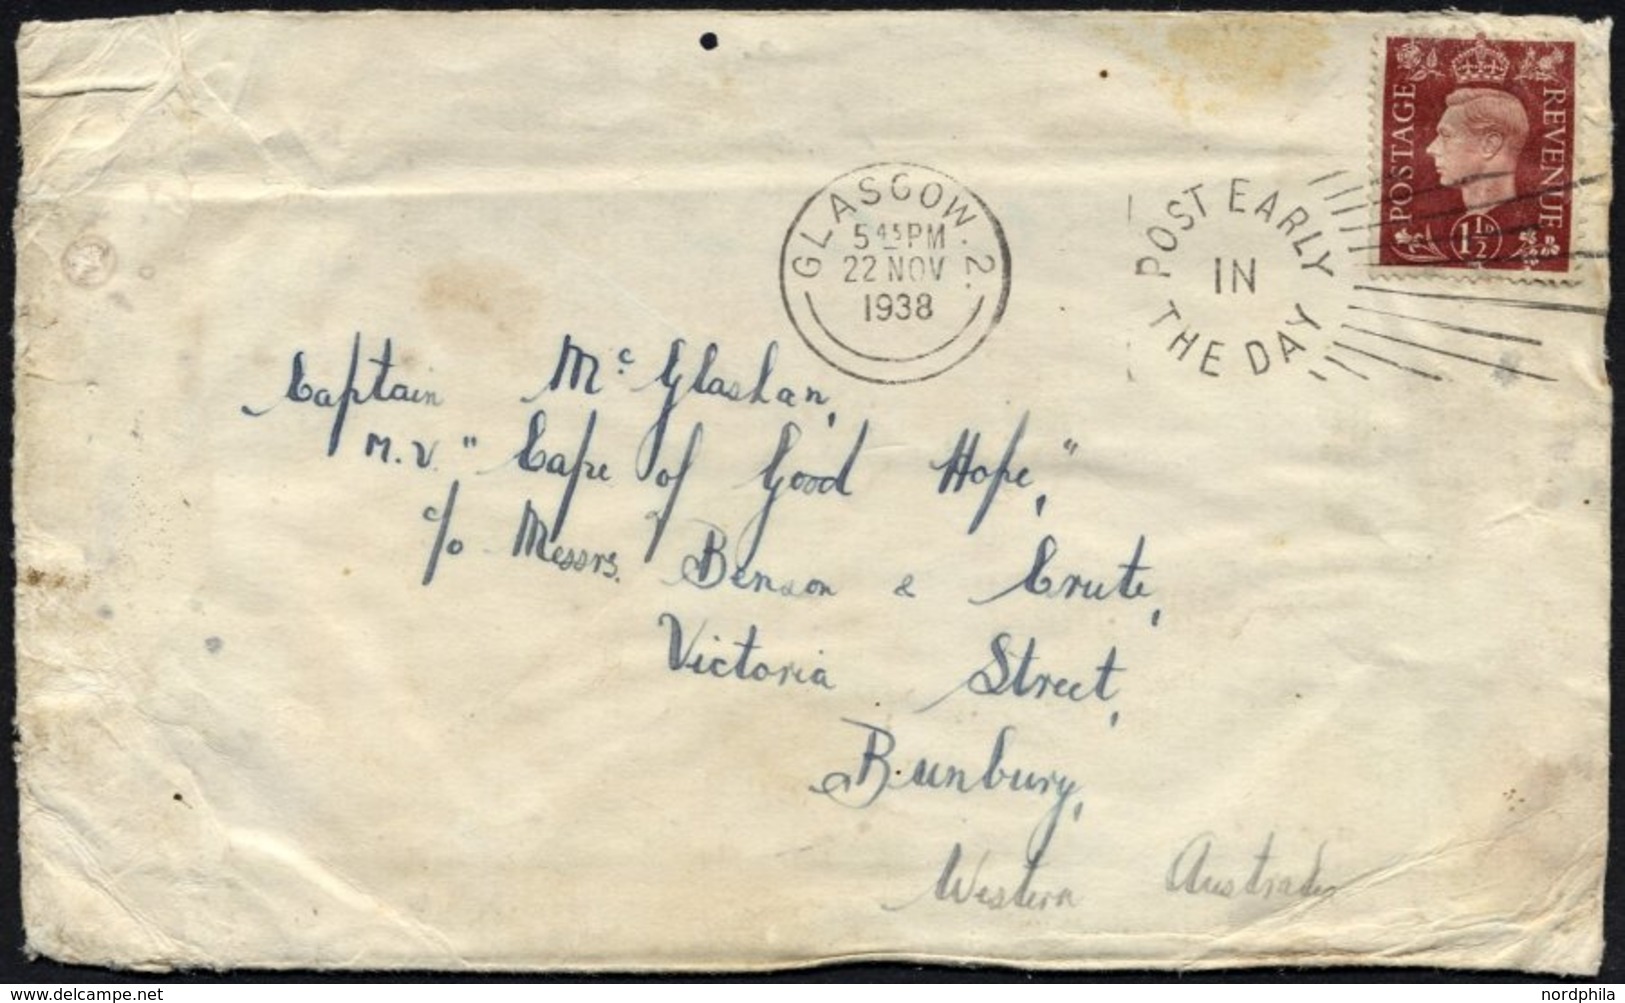 POSTAGE
REVENUE
1½D
GLASGOW. 2.
5 45 PM
22 NOV
1938
POST EARLY
IN
THE DAY
Captain Mc Glashan,
M.V. "Cape of Good Hope,"
c/o Messrs. Benson & Crute,
Victoria Street,
Bunbury,
Western Australia
delcampe.net
nordphila